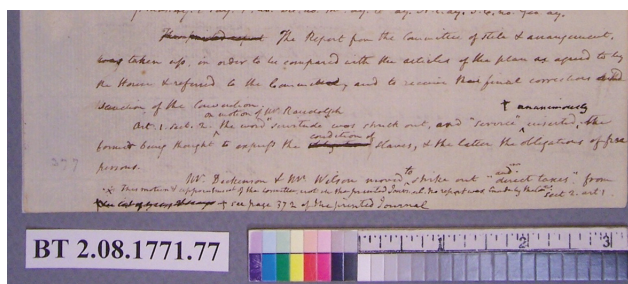 The Report from the Committee of stile & arrangement,
was taken up, in order to be compared with the articles of the plan as agreed to by
the House & referred to the Committee, and to receive the final corrections and
sanction of the Convention.
on motion of Mr Randolph † unanimously
Art. 1. sect. 2. the word "servitude" was struck out, and "service" inserted, the
condition of
former being thought to express the slaves, & the latter the obligations of free
persons.
to and
Mr Dickenson & Mr Wilson moved strike out "direct taxes" from
* This motion & appointment of the Committee, not in the printed Journal. no report was sect 2. art 1.
† see page 372 of the printed Journal
377
BT 2.08.1771.77
1 2 3